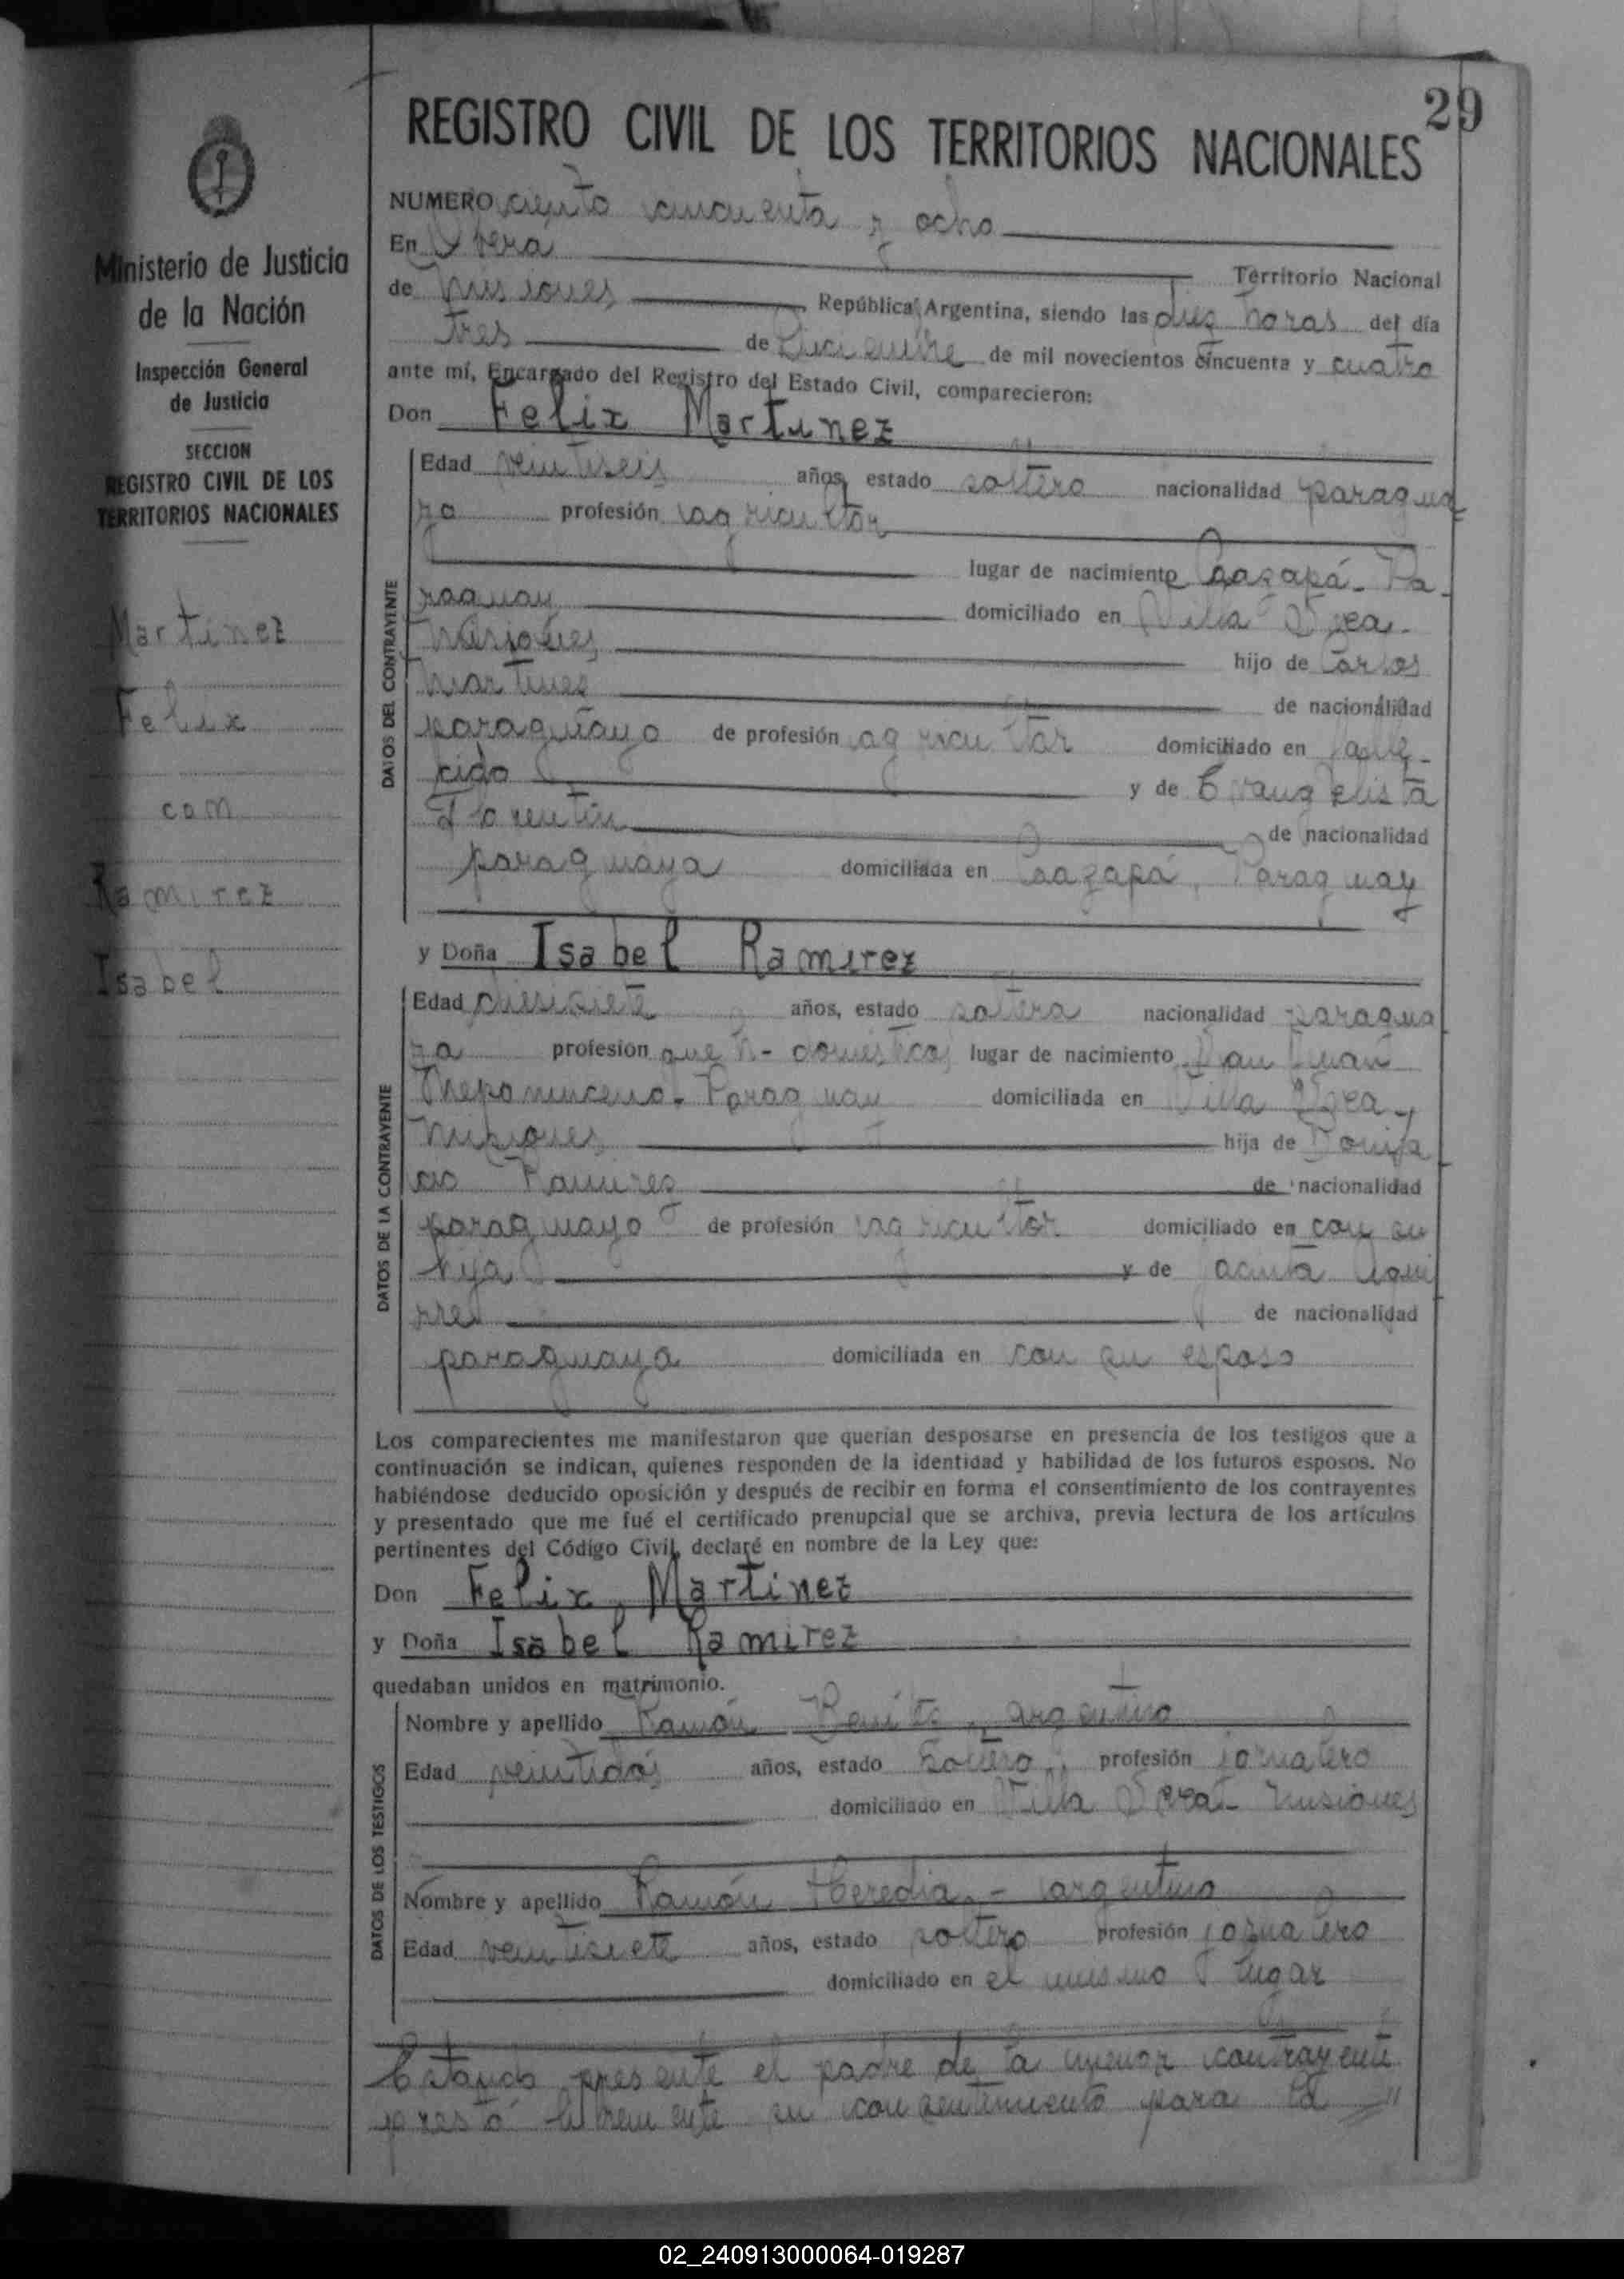 29
REGISTRO CIVIL DE LOS TERRITORIOS NACIONALES
Ministerio de Justicia
de la Nación
Inspección General
de Justicia
SECCION
REGISTRO CIVIL DE LOS
TERRITORIOS NACIONALES
Martinez
Felix
con
Ramirez
Isabel
NUMERO ciento cincuenta y ocho
En Obera Territorio Nacional
de Misiones República Argentina, siendo las diez horas del día
tres de Diciembre de mil novecientos cincuenta y cuatro
ante mí, Encargado del Registro del Estado Civil, comparecieron:
Don Felix Martinez
DATOS DEL CONTRAYENTE
Edad veintiseis años, estado soltero nacionalidad paragua
yo profesión agricultor
lugar de nacimiento Caazapá - Pa-
raguay domiciliado en Villa
Misiones hijo de Carlos
Martinez de nacionalidad
paraguayo de profesión agricultor domiciliado en falle-
cido y de Evangelista
Florentin de nacionalidad
paraguaya domiciliada en Caazapá, Paraguay
y Doña Isabel Ramirez
DATOS DE LA CONTRAYENTE
Edad diesisiete años, estado soltera nacionalidad paragua
ya profesión domesticos lugar de nacimiento San Juan
Nepomuceno - Paraguay domiciliada en Villa
Misiones hija de Bonifa
cio Ramires de nacionalidad
paraguayo de profesión agricultor domiciliado en con su
hija y de
de nacionalidad
paraguaya domiciliada en con su esposo
Los comparecientes me manifestaron que querían desposarse en presencia de los testigos que a
continuación se indican, quienes responden de la identidad y habilidad de los futuros esposos. No
habiéndose deducido oposición y después de recibir en forma el consentimiento de los contrayentes
y presentado que me fué el certificado prenupcial que se archiva, previa lectura de los artículos
pertinentes del Código Civil, declaré en nombre de la Ley que:
Don Felix Martinez
y Doña Isabel Ramirez
quedaban unidos en matrimonio.
DATOS DE LOS TESTIGOS
Nombre y apellido Ramón Benitez, argentino
Edad veintidós años, estado soltero, profesión jornalero
domiciliado en Villa Misiones
Nombre y apellido Ramón Heredia, - argentino
Edad veintisiete años, estado soltero profesión jornalero
domiciliado en el mismo lugar
Estando presente el padre de la menor contrayente
prestó libremente su consentimiento para la //
02_240913000064-019287